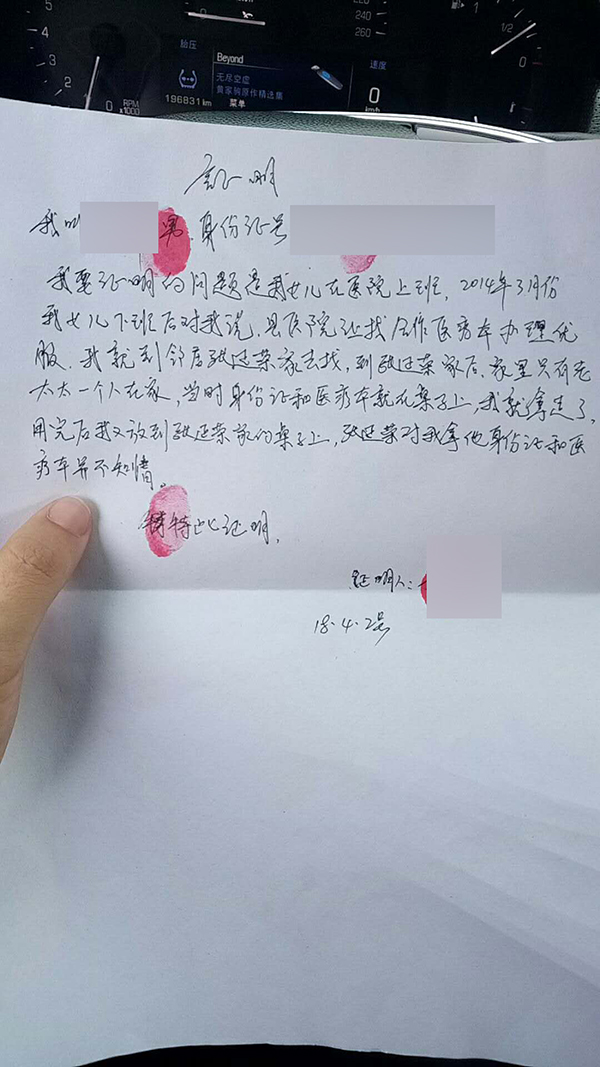 5
4
3
2
0
RPM
x1000
胎压
196931 km
Beyond
无尽空虚
黄家驹原作精选集
菜单
220
240
260
速度
0
km/h
1
1/2
0
证明
我叫 男 身份证号
我要证明的问题是我女儿在医院上班，2014年3月份
我女儿下班后对我说，县医院让找合作医疗本办理优
服。我就到邻居张廷荣家去找，到张廷荣家后，家里只有老
太太一个人在家，当时身份证和医疗本就在桌子上，我就拿走了，
用完后我又放到张廷荣家的桌子上，张廷荣对我拿他身份证和医
疗本并不知情。
特此证明，
证明人：
18.4.2号